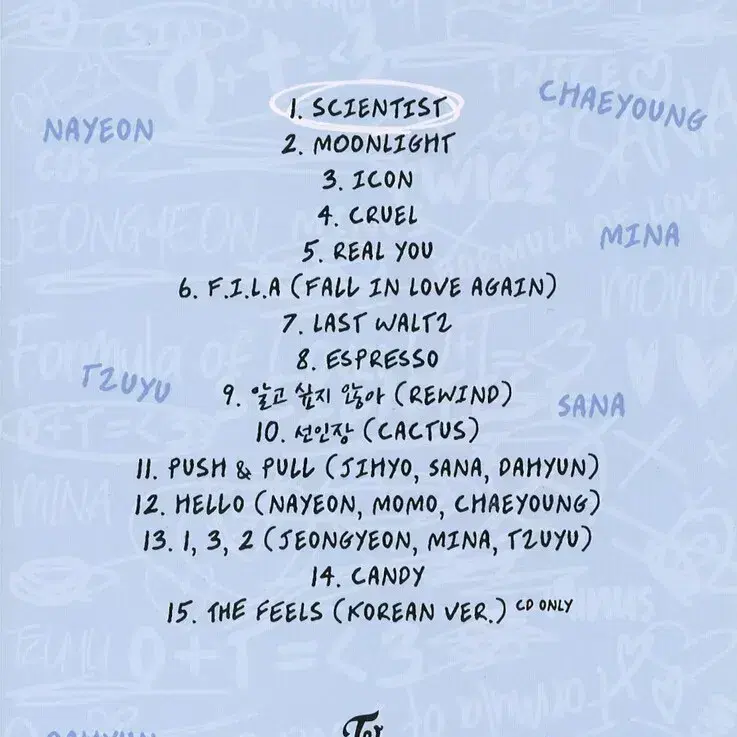 1. SCIENTIST
CHAEYOUNG
NAYEON
2. MOONLIGHT
3. ICON
4. CRUEL
MINA
5. REAL YOU
6. F.I.L.A (FALL IN LOVE AGAIN)
7. LAST WALTZ
8. ESPRESSO
TZUYU
9. 알고 싶지 않아 (REWIND)
SANA
10. 선인장 (CACTUS)
11. PUSH & PULL (JIHYO, SANA, DAHYUN)
12. HELLO (NAYEON, MOMO, CHAEYOUNG)
13. 1, 3, 2 (JEONGYEON, MINA, TZUYU)
14. CANDY
15. THE FEELS (KOREAN VER.) CD ONLY
JEONGYEON
MOMO
MINA
TZUYU
O+T=<3